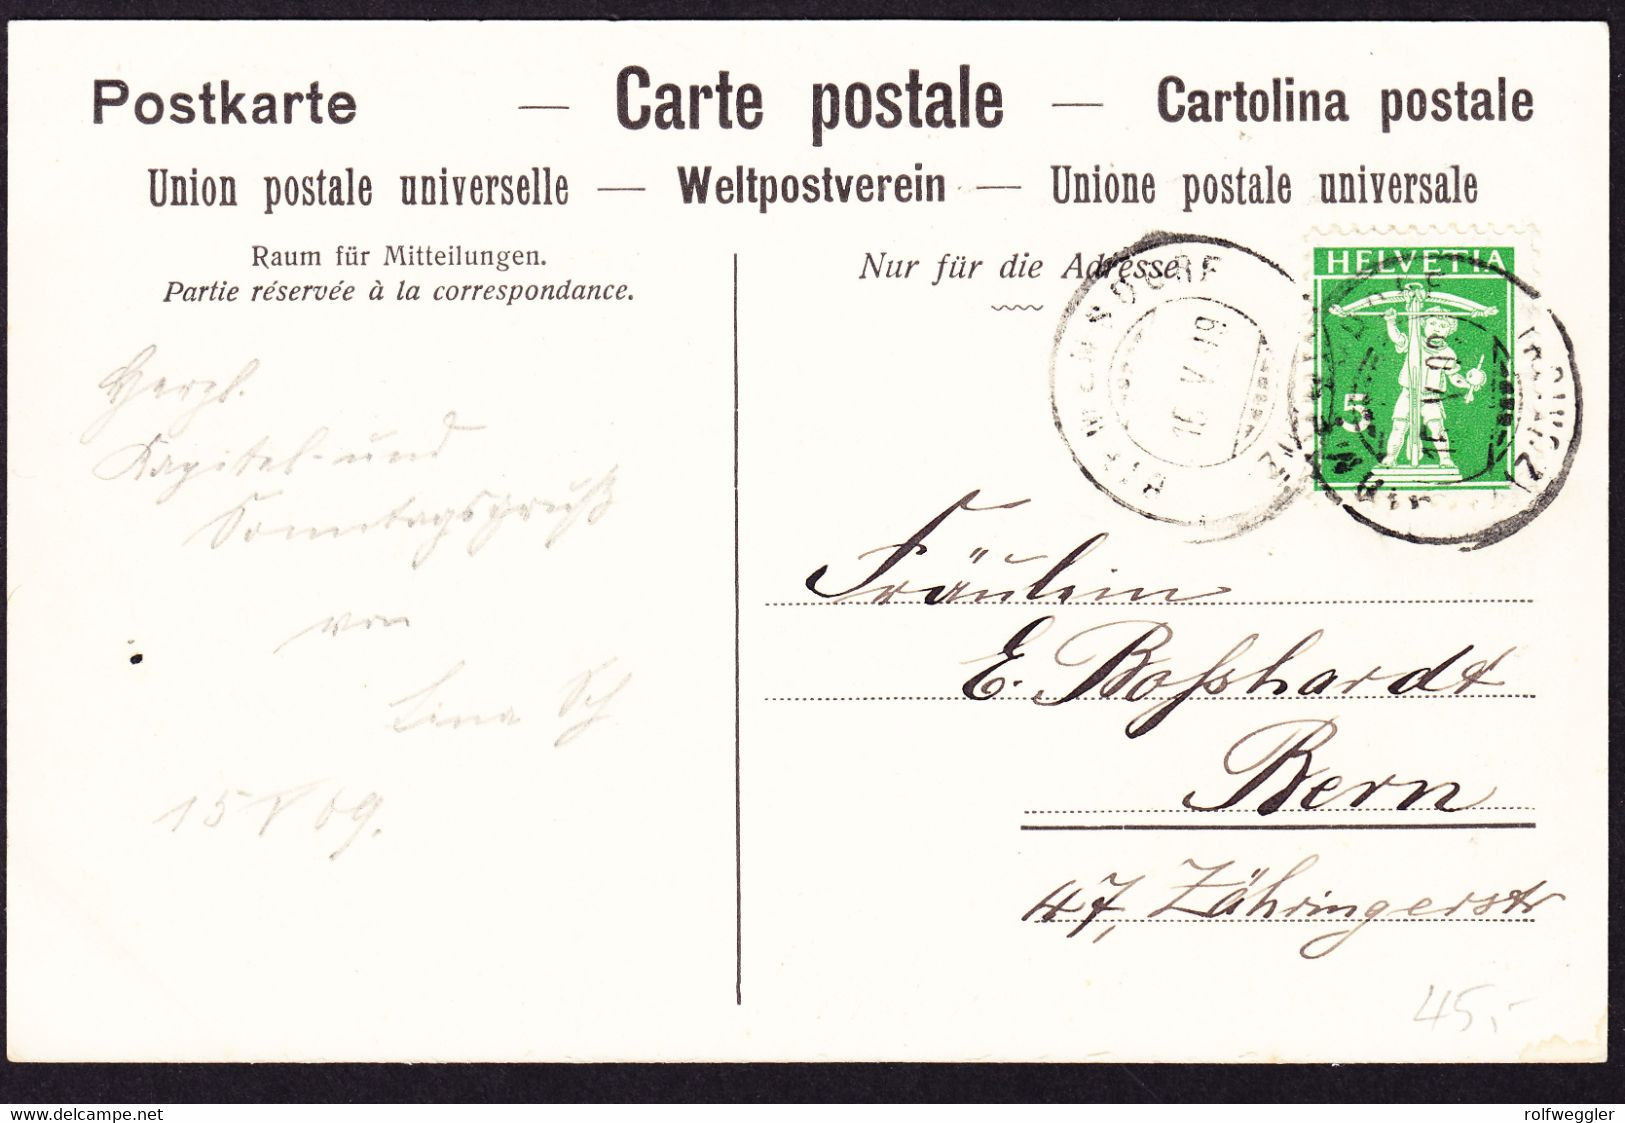 Postkarte — Carte postale — Cartolina postale
Union postale universelle — Weltpostverein — Unione postale universale
Raum für Mitteilungen.
Partie réservée à la correspondance.
Nur für die Adresse
HELVETIA
5
Herzl.
Kapitel- und
Sonntagsgruß
von
Lina Sch
15 V 09.
Fräulein
E. Boßhardt
Bern
47, Zähringerstr
45,-
www.delcampe.net
rolfweggler